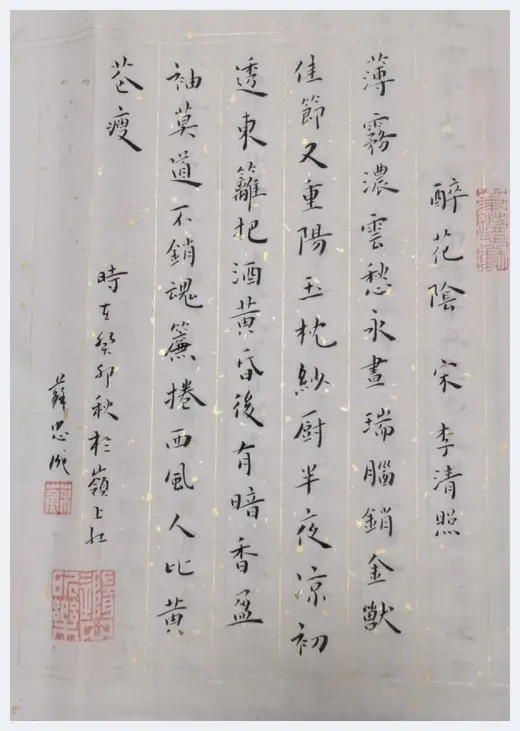 醉花陰 宋 李清照
薄霧濃雲愁永晝瑞腦銷金獸
佳節又重陽玉枕紗厨半夜凉初
透東籬把酒黃昏後有暗香盈
袖莫道不銷魂簾捲西風人比黃
花瘦
時在癸卯秋於嶺上
薛忠